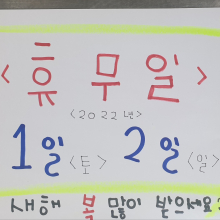 <휴무일>
<2022년>
1일<토> 2일<일>
새해 복 많이 받으세요